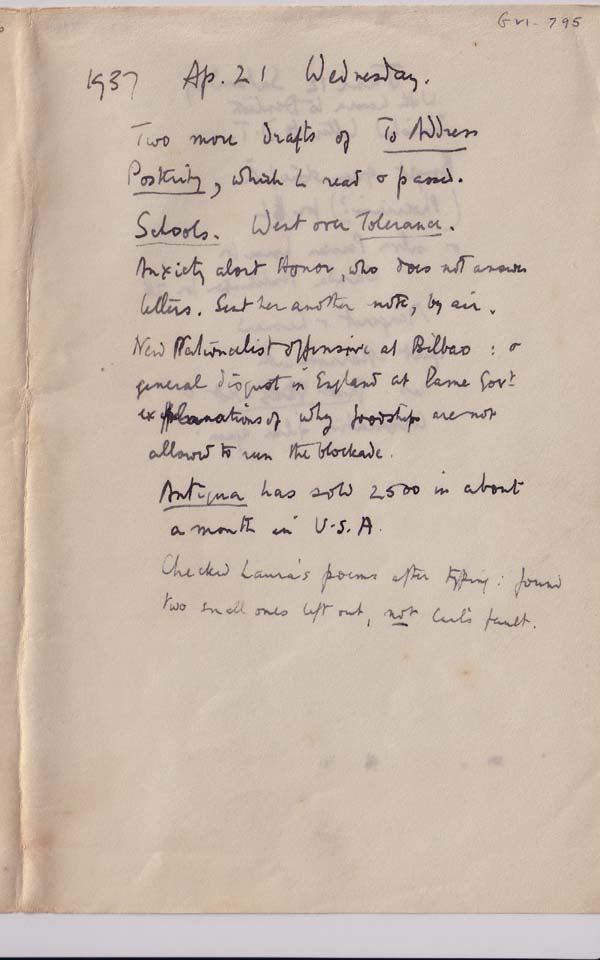 GVI - 795
1937 Ap. 21 Wednesday.
Two more drafts of To Address
Posterity, which L read & passed.
Schools. Went over Tolerance.
Anxiety about Honor, who does not answer
letters. Sent her another note, by air.
New Nationalist offensive at Bilbao : &
general disgust in England at lame Govt
explanations of why foodships are not
allowed to run the blockade.
Antigua has sold 2500 in about
a month in U.S.A.
Checked Laura's poems after typing : found
two small ones left out, not Karl's fault.